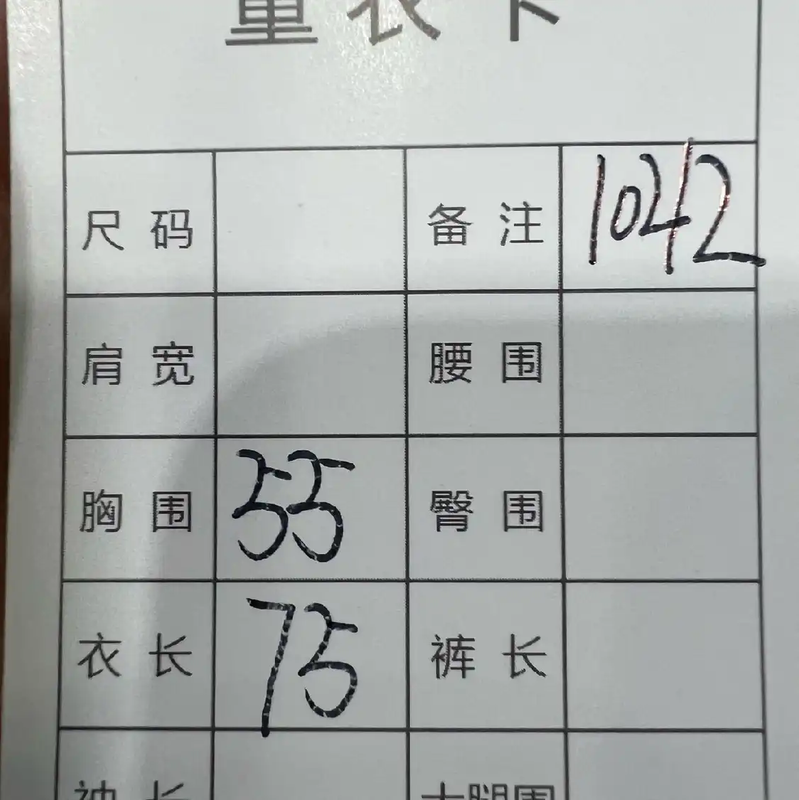 量衣卡
尺码 备注 1042
肩宽 腰围
胸围 55 臀围
衣长 75 裤长
袖长 大腿围